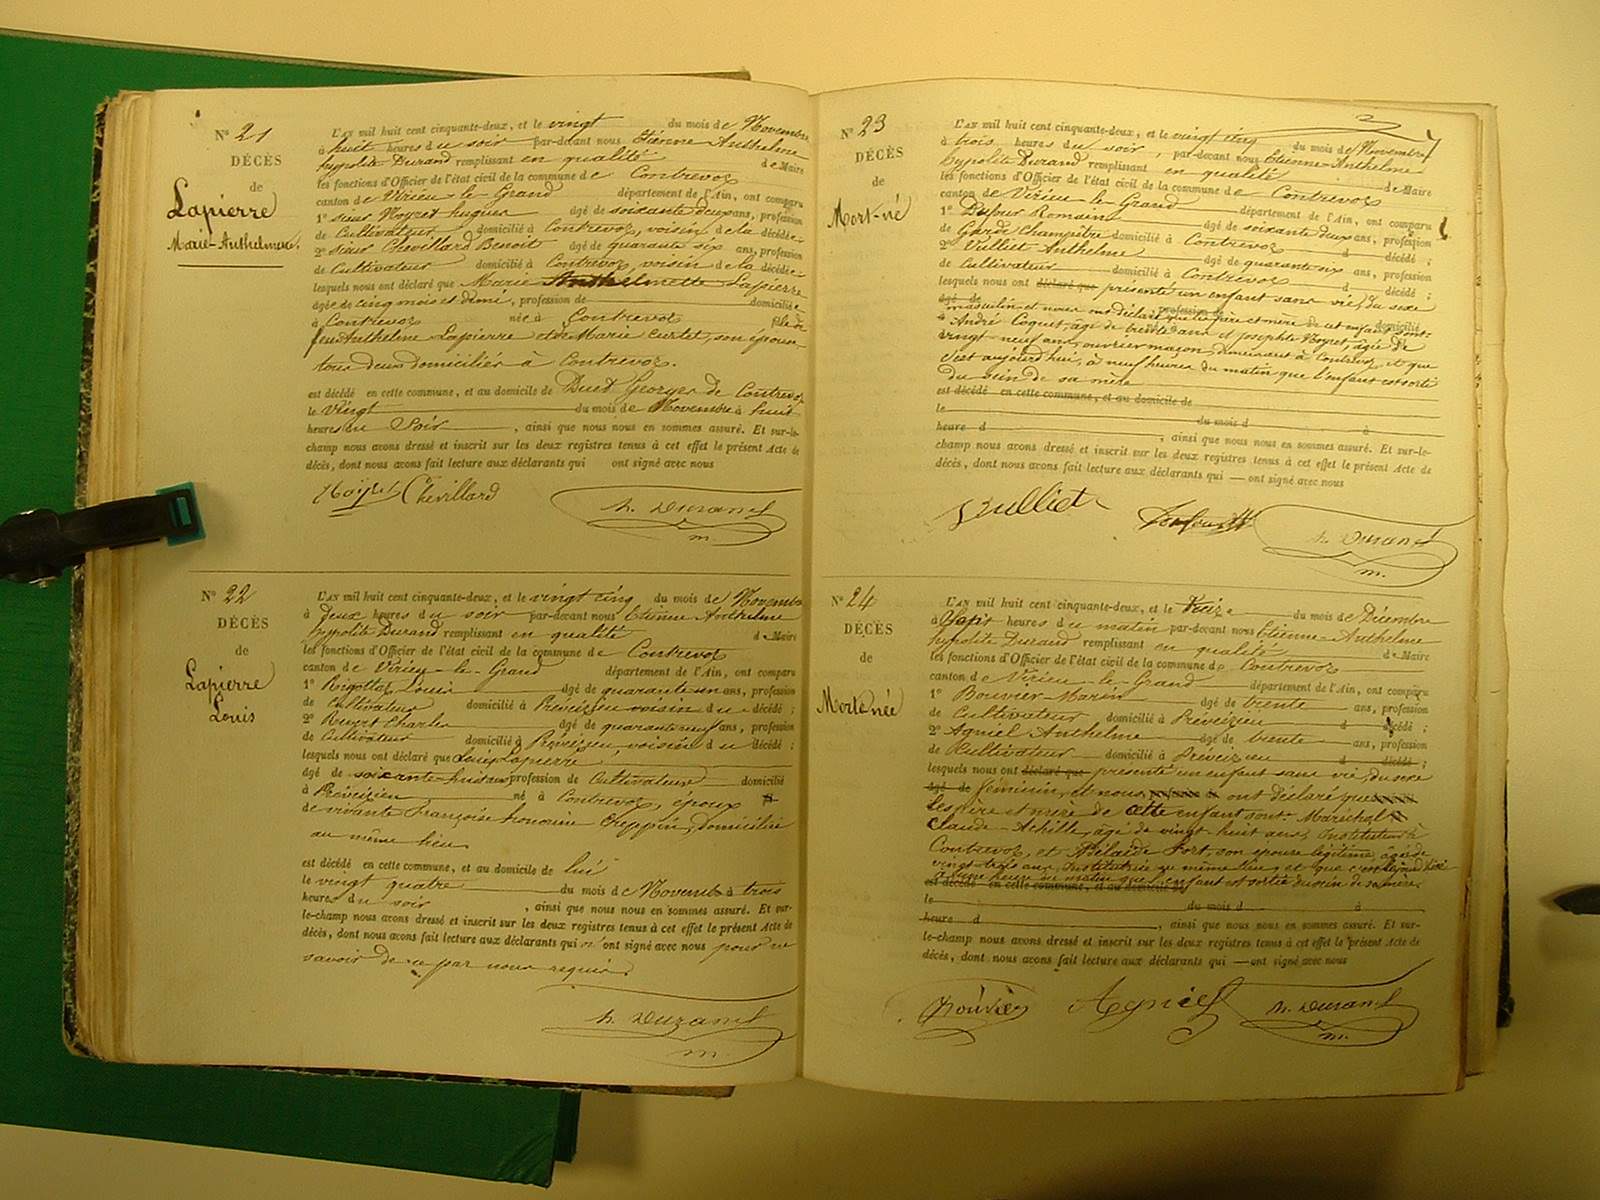 N° 21
DÉCÈS
de
Lapierre
Marie-Anthelmette.
L'AN mil huit cent cinquante-deux, et le vingt du mois de Novembre
à huit heures du soir par-devant nous Etienne-Anthelme
hypolite Durand remplissant en qualité de Maire
les fonctions d'Officier de l'état civil de la commune de Contrevoz
canton de Virieu-le-Grand département de l'Ain, ont comparu
1° sieur Noyret hugues âgé de soixante deux ans, profession
de Cultivateur domicilié à Contrevoz, voisin de la décédée;
2° sieur Chevillard Benoit âgé de quarante six ans, profession
de Cultivateur domicilié à Contrevoz, voisin de la décédée
lesquels nous ont déclaré que Marie Anthelmette Lapierre
âgée de cinq mois et demi, profession de domiciliée
à Contrevoz née à Contrevoz fille de
feu Anthelme Lapierre et de Marie Curtet, son épouse
tous deux domiciliés à Contrevoz.
est décédé en cette commune, et au domicile de Buet Georges de Contrevoz
le vingt du mois de Novembre à huit
heures du Soir, ainsi que nous nous en sommes assuré. Et sur-le-
champ nous avons dressé et inscrit sur les deux registres tenus à cet effet le présent Acte de
décès, dont nous avons fait lecture aux déclarants qui ont signé avec nous
Noyret Chevillard
h. Durand
m.
N° 22
DÉCÈS
de
Lapierre
Louis
L'AN mil huit cent cinquante-deux, et le vingt cinq du mois de Novembre
à Deux heures du soir par-devant nous Etienne Anthelme
hypolite Durand remplissant en qualité de Maire
les fonctions d'Officier de l'état civil de la commune de Contrevoz
canton de Virieu-le-Grand département de l'Ain, ont comparu
1° Rigottaz Louis âgé de quarante un ans, profession
de Cultivateur domicilié à Préveizieu voisin du décédé;
2° Charles âgé de quarante neuf ans, profession
de Cultivateur domicilié à Préveizieu, voisin du décédé;
lesquels nous ont déclaré que Louis Lapierre
âgé de soixante-huit ans profession de Cultivateur domicilié
à Préveizieu né à Contrevoz, époux
de vivante Françoise honorine domiciliée
au même lieu
est décédé en cette commune, et au domicile de lui
le vingt quatre du mois de Novembre à trois
heures du soir, ainsi que nous nous en sommes assuré. Et sur-
le-champ nous avons dressé et inscrit sur les deux registres tenus à cet effet le présent Acte de
décès, dont nous avons fait lecture aux déclarants qui n' ont signé avec nous pour ne
savoir de ce par nous requis.
h. Durand
m
N° 23
DÉCÈS
de
Mort-né
L'AN mil huit cent cinquante-deux, et le vingt cinq du mois de Novembre
à trois heures du soir, par-devant nous Etienne-Anthelme
hypolite Durand remplissant en qualité de Maire
les fonctions d'Officier de l'état civil de la commune de Contrevoz
canton de Virieu-le-Grand département de l'Ain, ont comparu
1° Dufour Romain âgé de soixante deux ans, profession
de Garde Champêtre domicilié à Contrevoz d décédé;
2° Vulliet Anthelme âgé de quarante six ans, profession
de Cultivateur domicilié à Contrevoz d décédé;
lesquels nous ont déclaré que présenté un enfant sans vie, du sexe
masculin et nous ont déclaré que les père et mère de cet enfant sont:
André Coquet, âgé de trente ans et Josephte Noyret, âgée de
vingt-neuf ans, ouvrier maçon, demeurant à Contrevoz, et que
c'est aujourd'hui, à neuf heures du matin que l'enfant est sorti
du sein de sa mère
est décédé en cette commune, et au domicile de
le du mois d à
heure d, ainsi que nous nous en sommes assuré. Et sur-le-
champ nous avons dressé et inscrit sur les deux registres tenus à cet effet le présent Acte de
décès, dont nous avons fait lecture aux déclarants qui — ont signé avec nous
Vulliet
h. Durand
m.
N° 24
DÉCÈS
de
Morte née
L'AN mil huit cent cinquante-deux, et le treize du mois de Décembre
à Sept heures du matin par-devant nous Etienne-Anthelme
hypolite Durand remplissant en qualité de Maire
les fonctions d'Officier de l'état civil de la commune de Contrevoz
canton de Virieu-le-Grand département de l'Ain, ont comparu
1° Bouvier Marin âgé de trente ans, profession
de Cultivateur domicilié à Préveizieu d décédé;
2° Agniel Anthelme âgé de trente ans, profession
de Cultivateur domicilié à Préveizieu d décédé;
lesquels nous ont déclaré que présenté un enfant sans vie, du sexe
âgé de féminin, et nous ont déclaré que
les père et mère de cette enfant sont: Maréchal
Claude-Achille, âgé de vingt-huit ans, Instituteur à
Contrevoz, et Adélaïde Fort, son épouse légitime, âgée de
vingt-trois ans, Institutrice au même lieu, et que c'est aujourd'hui
à une heure du matin que l'enfant est sortie du sein de sa mère.
est décédé en cette commune, et au domicile de
le du mois d à
heure d, ainsi que nous nous en sommes assuré. Et sur-
le-champ nous avons dressé et inscrit sur les deux registres tenus à cet effet le présent Acte de
décès, dont nous avons fait lecture aux déclarants qui — ont signé avec nous
Bouvier Agniel h. Durand
m.